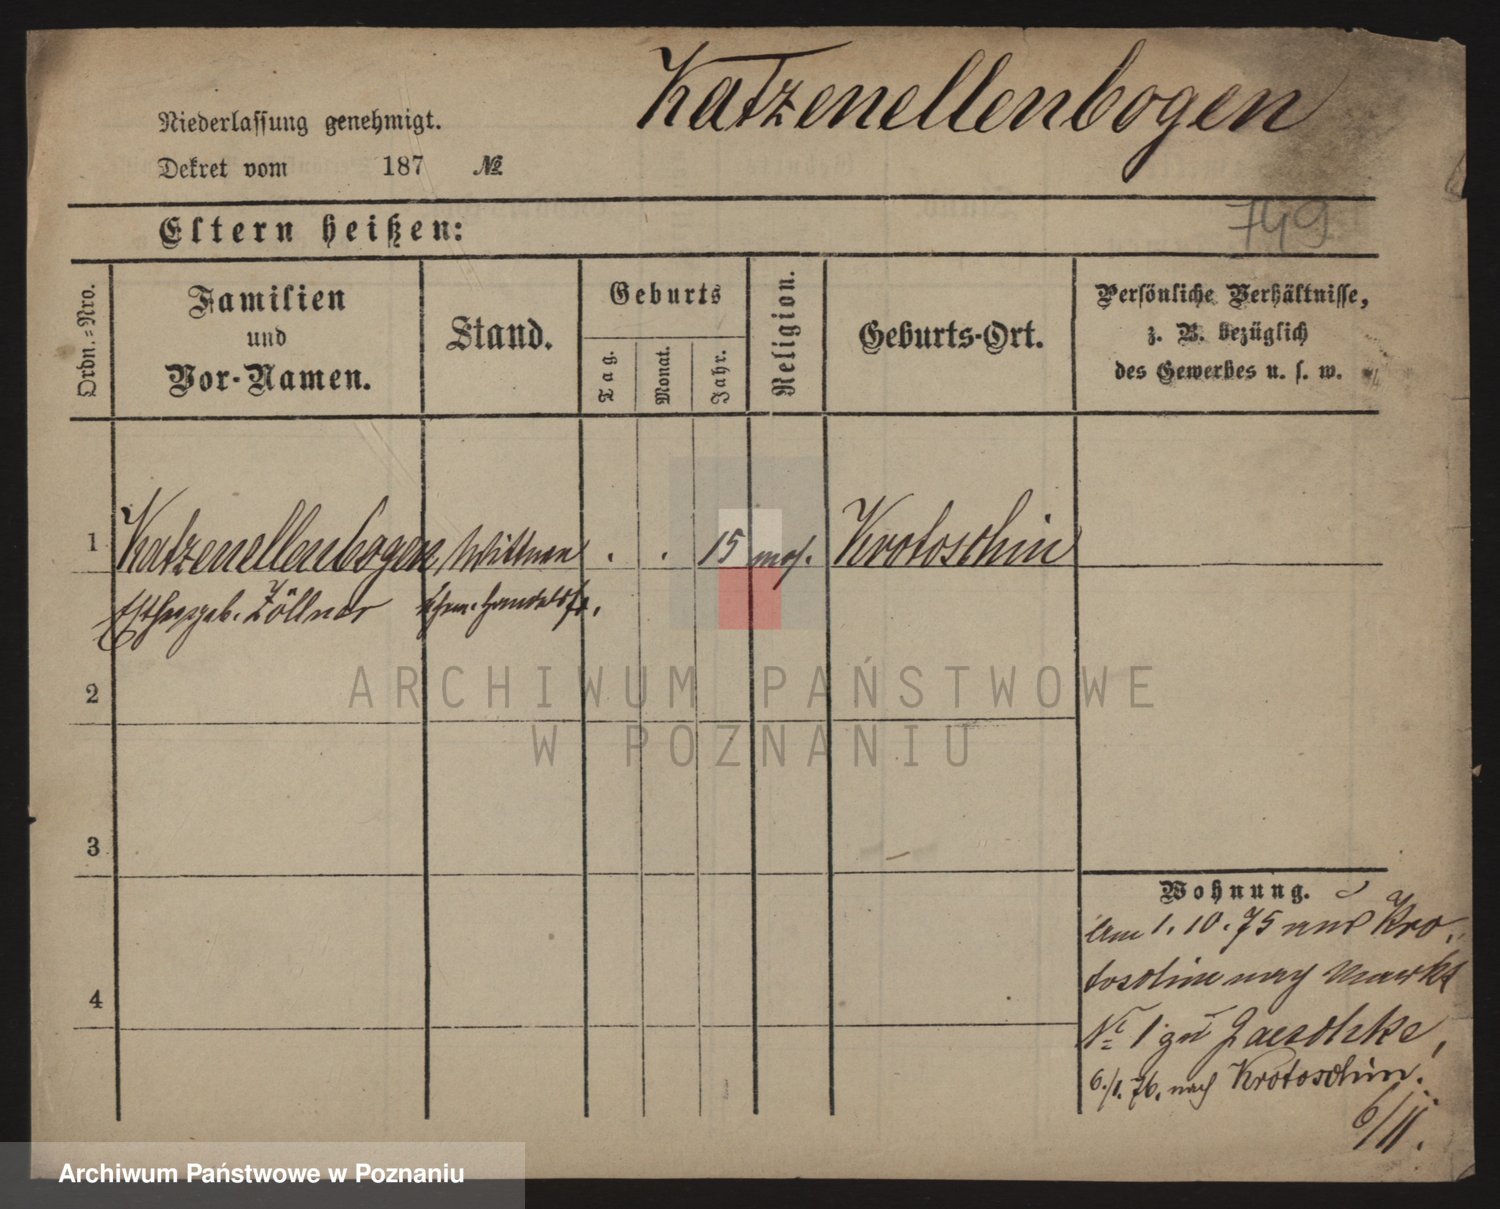 Katzenellenbogen
Niederlassung genehmigt.
Dekret vom 187 №
749
Eltern heißen:
Ordn.-Nro.
Familien
und
Vor-Namen.
Stand.
Geburts
Tag.
Monat.
Jahr.
Religion.
Geburts-Ort.
Persönliche Verhältnisse,
z. B. bezüglich
des Gewerbes u. s. w.
1 Katzenellenbogen Wittwe . . 15 mos. Krotoschin
Esther geb. Zöllner
2
3
4
Wohnung.
Am 1.10.75 aus Kro-
toschin nach Markt
No 1 zu
6./1. 76. nach Krotoschin.
6/II.
ARCHIWUM PAŃSTWOWE
W POZNANIU
Archiwum Państwowe w Poznaniu